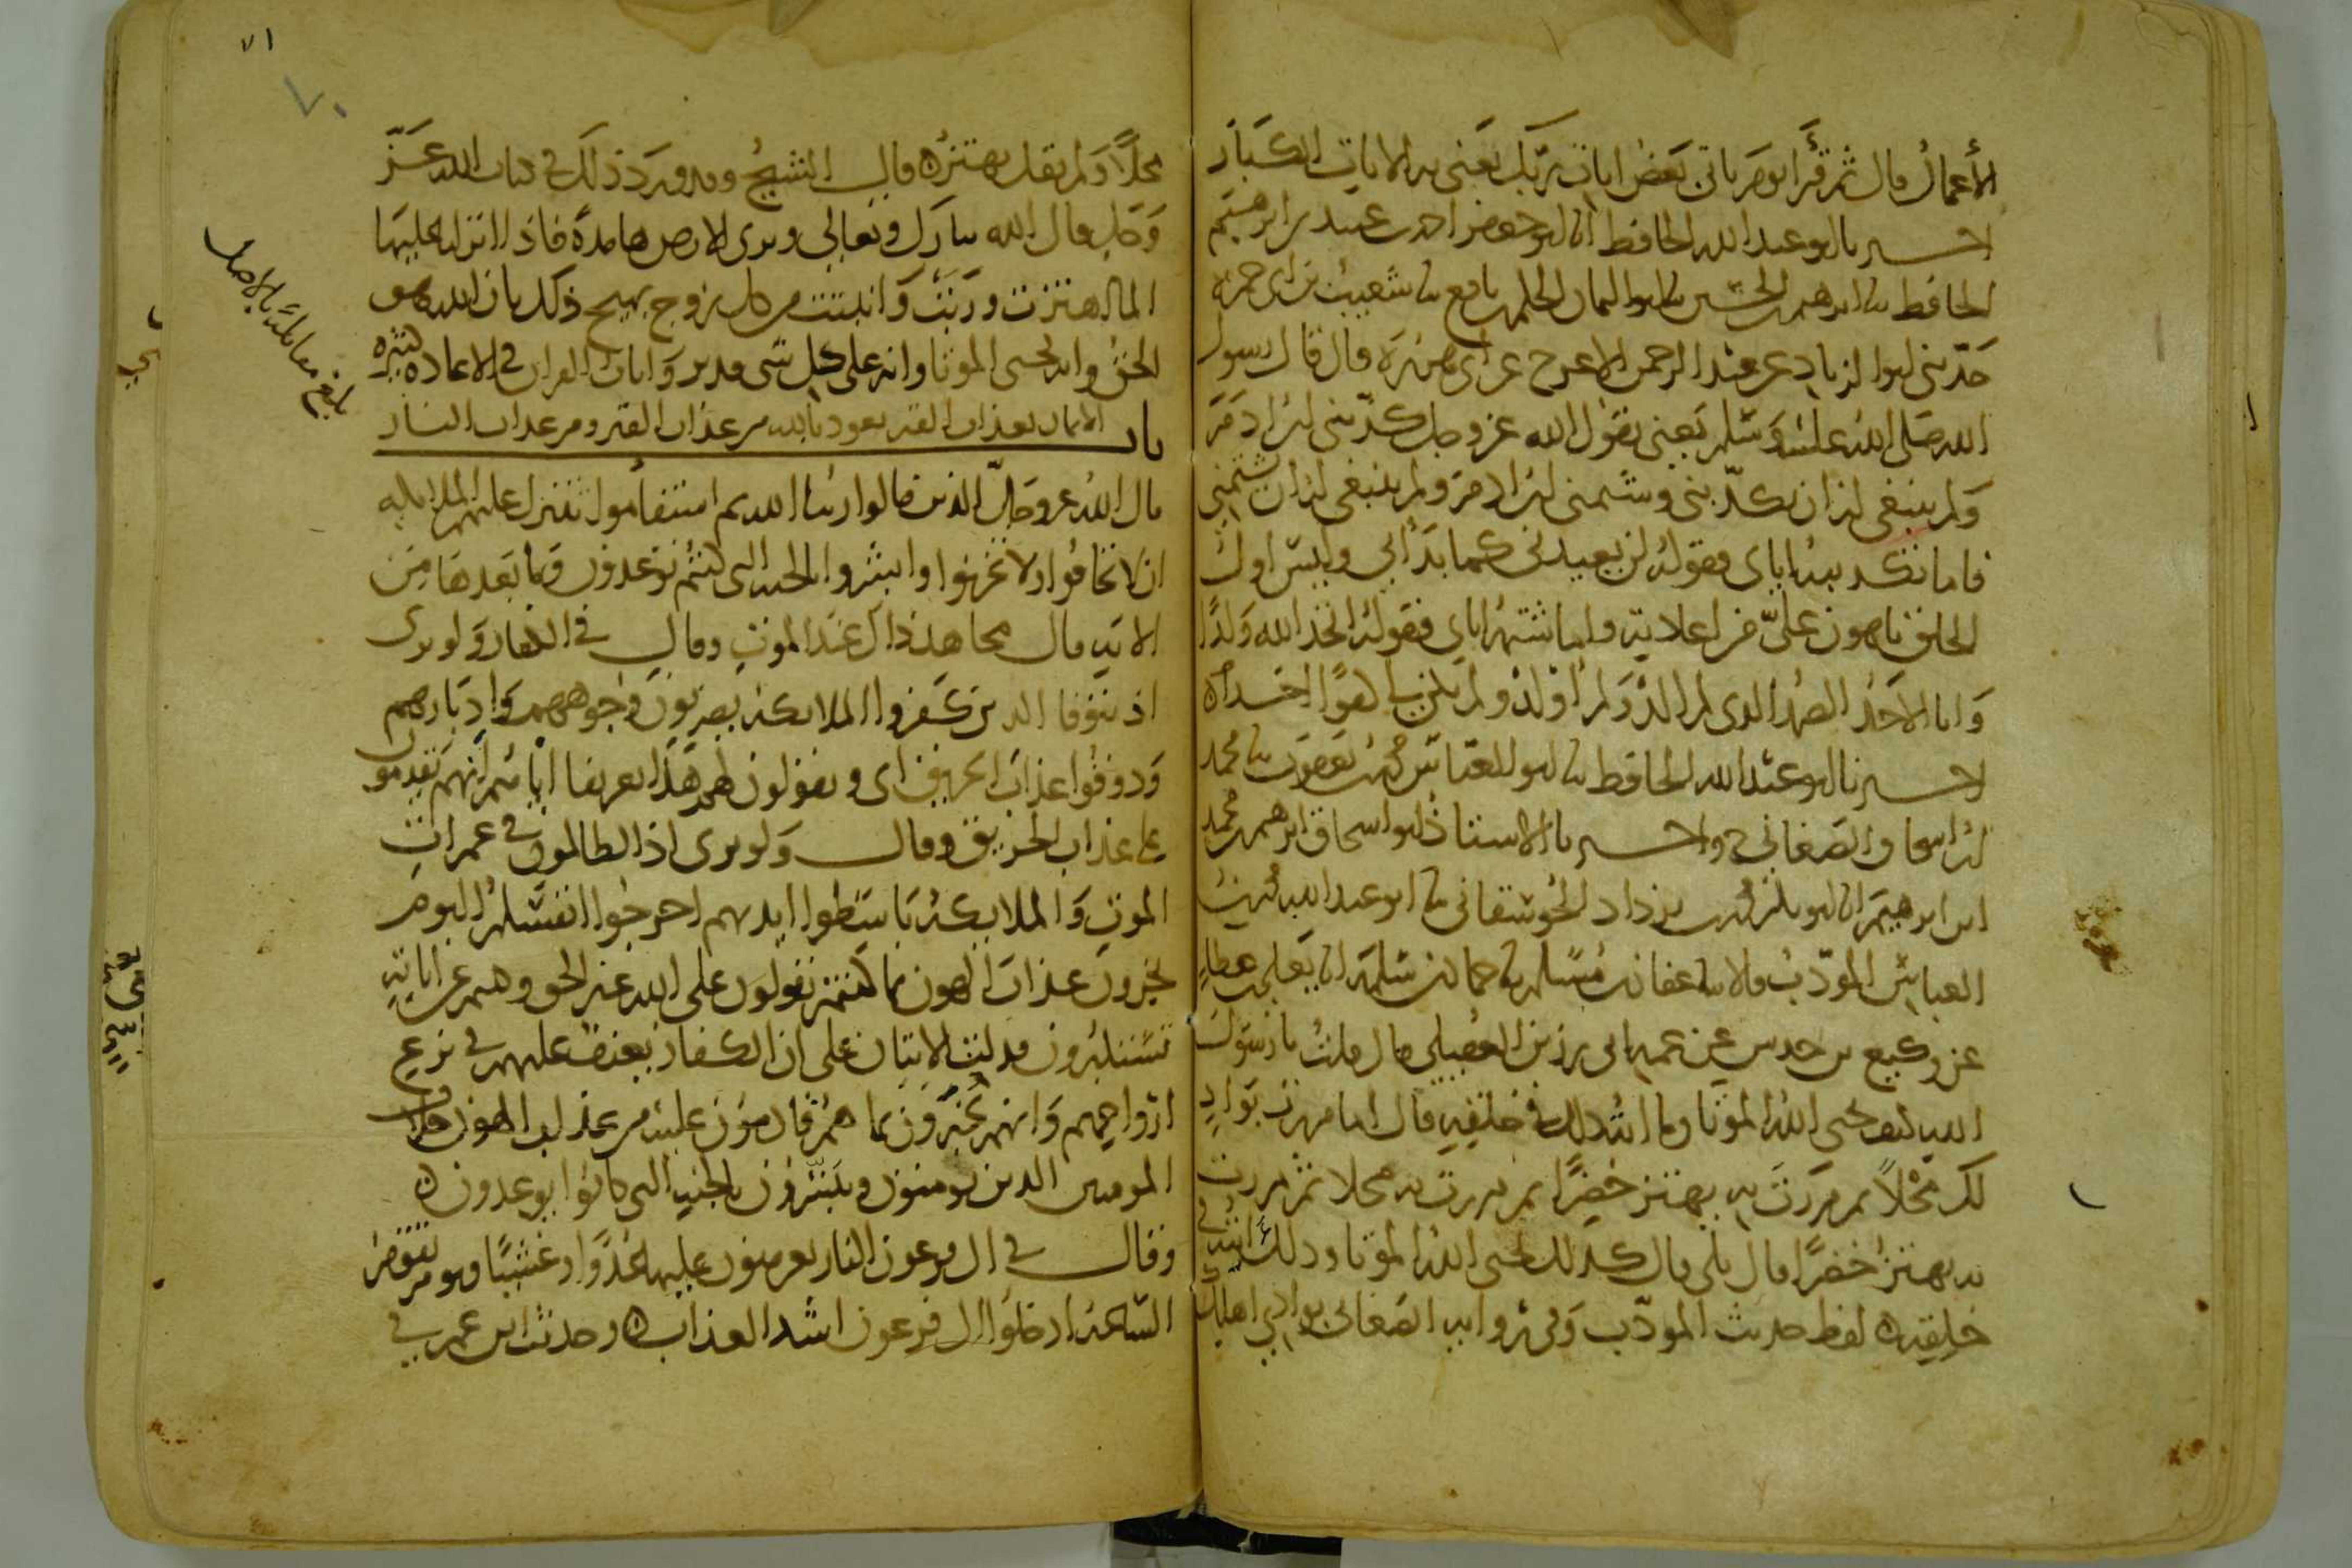 الأعمال قال ثم قرأ يوم ياتي بعض ايات ربك يعني به الايات الكبار
اخبرنا ابو عبد الله الحافظ انا ابو جعفر احمد بن عبيد بن ابرهيم
الحافظ نا ابرهيم بن الحسين نا ابو اليمان الحكم بن نافع نا شعيب بن ابي حمزة
حدثني ابو الزناد عن عبد الرحمن الاعرج عن ابي هريرة قال قال رسول
الله صلى الله عليه وسلم يعني يقول الله عز وجل كذبني ابن ادم
ولم ينبغي له ان يكذبني وشتمني ابن ادم ولم ينبغي له ان يشتمني
فاما تكذيبه اياي فقوله لن يعيدني كما بدأني وليس اول
الخلق باهون علي من اعادته واما شتمه اياي فقوله اتخذ الله ولدا
وانا الاحد الصمد الذي لم الد ولم اولد ولم يكن لي كفوا احد
اخبرنا ابو عبد الله الحافظ نا ابو العباس محمد بن يعقوب نا محمد
بن اسحاق الصغاني ح واخبرنا الاستاذ ابو اسحاق ابرهيم بن محمد
ابن ابرهيم انا ابو بكر محمد بن يزداد الجوسقاني نا ابو عبد الله محمد بن
العباس المودب قالا نا عفان بن مسلم نا حماد بن سلمة انا يعلى بن عطاء
عن وكيع بن حدس عن عمه ابي رزين العقيلي قال قلت يا رسول
الله كيف يحيي الله الموتا وما اية ذلك في خلقه قال اما مررت بوادٍ
لك محلا ثم مررت به يهتز خضرا ثم مررت به محلا ثم مررت
به يهتز خضرا قال بلى قال كذلك يحيي الله الموتا وذلك ايته في
خلقه لفظ حديث المودب وفي رواية الصغاني بوادي اهلك
محلا ولم يقل يهتز قال الشيخ وقد ورد ذلك في كتاب الله عز
وجل قال الله تبارك وتعالى وترى الارض هامدة فاذا انزلنا عليها
الماء اهتزت وربت وانبتت من كل زوج بهيج ذلك بان الله هو
الحق وانه يحيي الموتا وانه على كل شي قدير وايات القران في الاعادة كثيرة
باب الايمان بعذاب القبر نعوذ بالله من عذاب القبر ومن عذاب النار
قال الله عز وجل الذين قالوا ربنا الله ثم استقاموا تتنزل عليهم الملايكة
ان لا تخافوا ولا تحزنوا وابشروا بالجنة التي كنتم توعدون وما بعدها من
الاية قال مجاهد ذاك عند الموت وقال في الكفار ولو ترى
اذ يتوفا الذين كفروا الملايكة يضربون وجوههم وادبارهم
وذوقوا عذاب الحريق اي ويقولون لهم هذا تعريفا اياهم انهم يقدمون
على عذاب الحريق وقال ولو ترى اذ الظالمون في غمرات
الموت والملايكة باسطوا ايديهم اخرجوا انفسكم اليوم
تجزون عذاب الهون بما كنتم تقولون على الله غير الحق وهم عن اياته
تستكبرون فدلت الايتان على ان الكفار يعنف عليهم في نزع
ارواحهم وانهم يخبرون بما هم قادمون عليه من عذاب الهون خلاف
المومنين الذين يومنون ويبشرون بالجنة التي كانوا يوعدون
وقال في ال فرعون النار يعرضون عليها غدوا وعشيا ويوم تقوم
الساعة ادخلوا ال فرعون اشد العذاب وحديث ابن عمر في
بلغ مقابلة بالاصل
٧١
٧٠